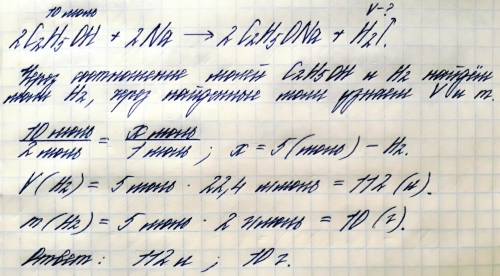 10 моль V-?
2C₂H₅OH + 2Na → 2C₂H₅ONa + H₂↑.
Через соотношение молей C₂H₅OH и H₂ найдём
моли H₂, через найденные моли узнаем V и m.
10 моль / 2 моль = x моль / 1 моль ; x = 5 (моль) – H₂.
V(H₂) = 5 моль · 22,4 л/моль = 112 (л).
m(H₂) = 5 моль · 2 г/моль = 10 (г).
Ответ: 112 л ; 10 г.